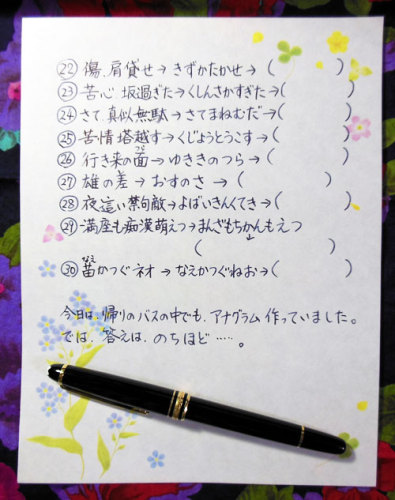 ㉒ 傷、肩貸せ→きずかたかせ→(　　　)
㉓ 苦心、坂過ぎた→くしんさかすぎた→(　　　)
㉔ さて、真似無駄→さてまねむだ→(　　　)
㉕ 苦情塔越す→くじょうとうこす→(　　　)
㉖ 行き来の面(つら)→ゆききのつら→(　　　)
㉗ 雄の差→おすのさ→(　　　)
㉘ 夜這い禁句敵→よばいきんくてき→(　　　)
㉙ 満座も痴漢萌えつ→まんざもちかんもえつ
↓
(　　　)
㉚ 苗(なえ)かつぐネオ→なえかつぐねお→(　　　)
今日は、帰りのバスの中でも、アナグラム作っていました。
では、答えは、のちほど……。